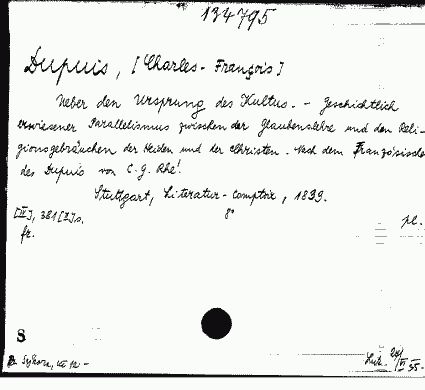 134795
Dupuis, [Charles-François]
Ueber den Ursprung des Kultus. - Geschichtlich
erwiesener Parallelismus zwischen der Glaubenslehre und den Reli-
gionsgebräuchen der Heiden und der Christen. Nach dem Französischen
des Dupuis von C. G. Rhé!
Stuttgart, Literatur-Comptoir, 1839.
[IV], 381 [1] s. 8° pl.
fr.
S